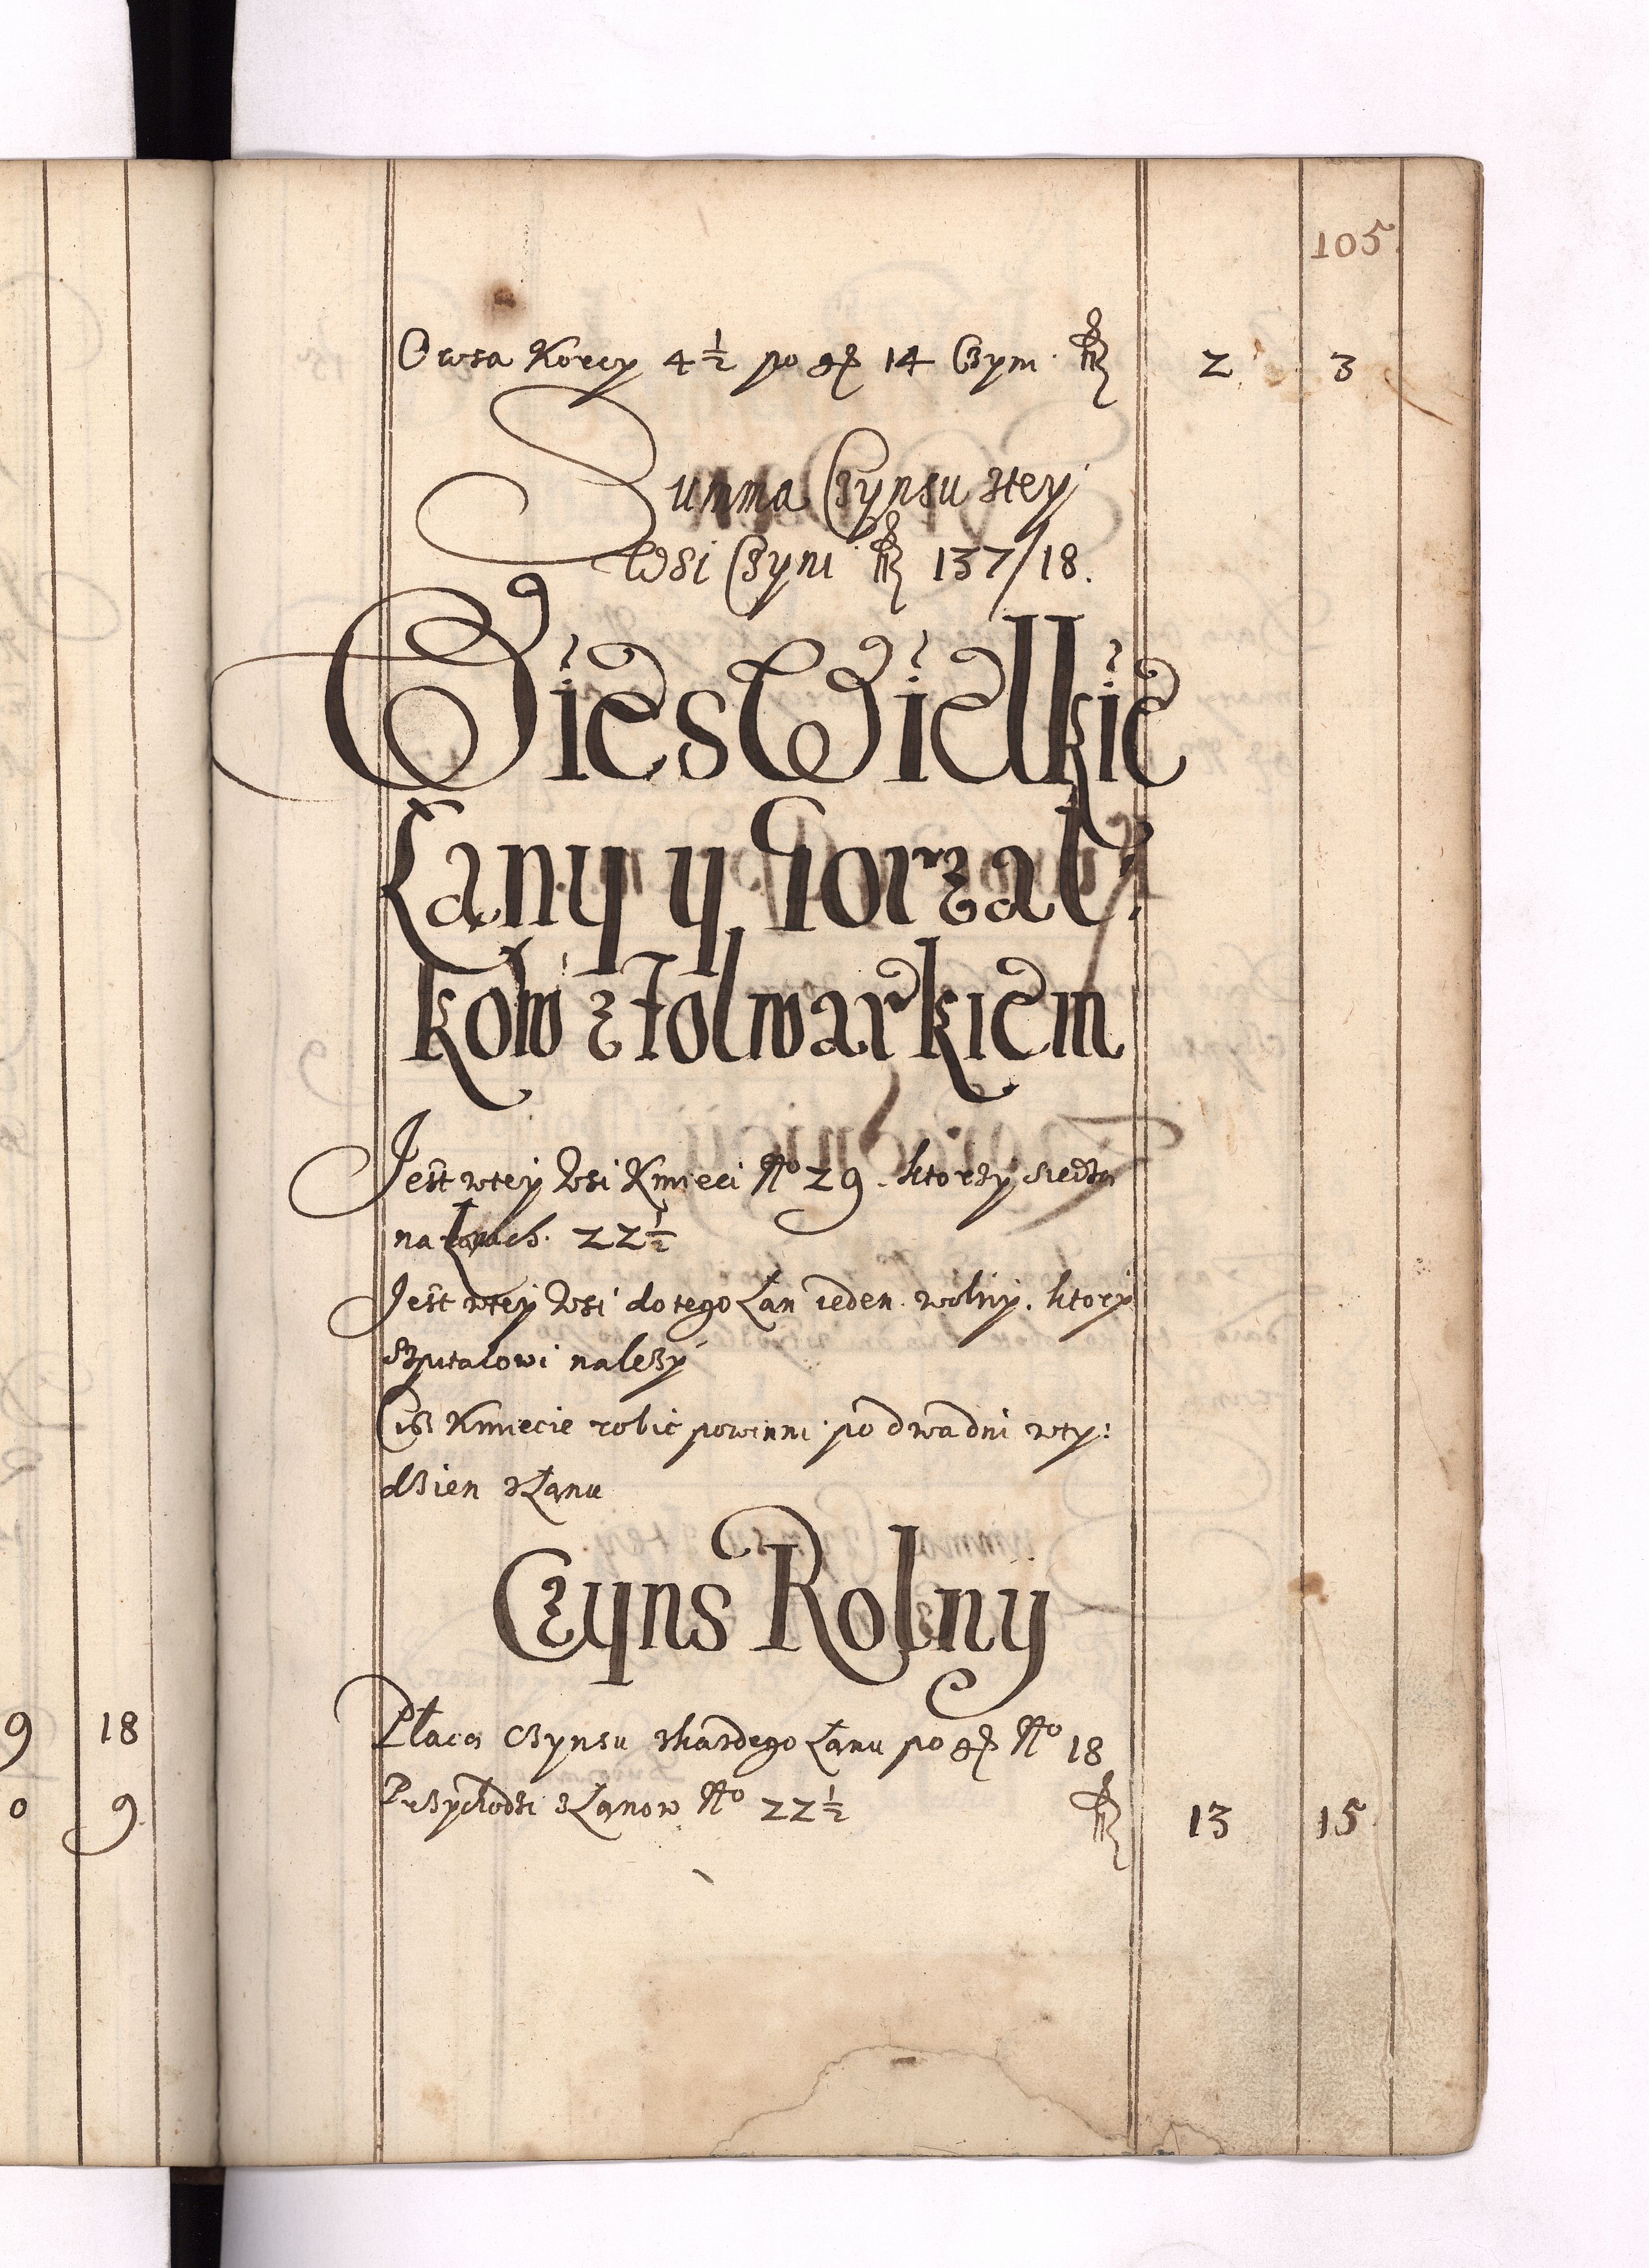 105.
Owsa Korcy 4½ po gr 14 Czyni fl 2 3
Summa Czynsu ztey
Wsi Czyni fl 137/18.
Wies Wielkie
Łany y Gorzał:
kow z ffolwarkiem
Jest wtey Wsi Kmieci No 29. ktorzy siedzą
na Łanach. 22½
Jest wtey Wsi do tego Łan ieden wolny. ktory
Szpitalowi należy
Ciż Kmiecie robić powinni po dwa dni wty:
dzien z Łanu
Czyns Rolny
Płacą Czynsu zkazdego Łanu po gr No 18
Przychodzi z Łanow No 22½ fl 13 15
9 18
0 9.